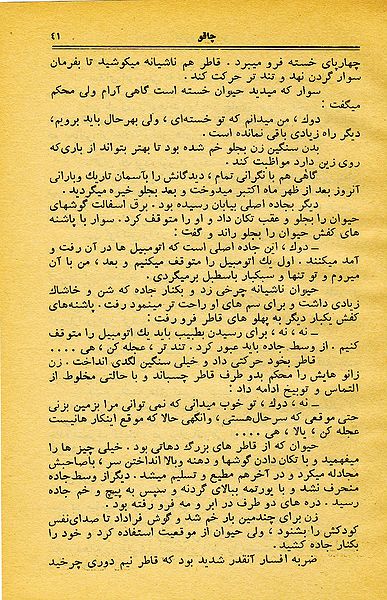 چاقو
۴۱
چهارپای خسته فرو میبرد . قاطر هم ناشیانه میکوشید تا بفرمان
سوار گردن نهد و تند تر حرکت کند .
سوار که میدید حیوان خسته است گاهی آرام ولی محکم
میگفت :
دوك ، من میدانم که تو خسته‌ای ، ولی بهرحال باید برویم ،
دیگر راه زیادی باقی نمانده است .
بدن سنگین زن بجلو خم شده بود تا بهتر بتواند از باری‌که
روی زین دارد مواظبت کند .
گاهی هم با نگرانی تمام ، دیدگانش را بآسمان تاریك وبارانی
آنروز بعد از ظهر ماه اکتبر میدوخت و بعد بجلو خیره میگردید .
دیگر بجاده اصلی بیابان رسیده بود . برق اسفالت گوشهای
حیوان را بجلو و عقب تکان داد و او را متوقف کرد . سوار با پاشنه
های کفش حیوان را بجلو راند و گفت :
ـ دوك ، این جاده اصلی است که اتومبیل ها در آن رفت و
آمد میکنند . اول یك اتومبیل را متوقف میکنیم و بعد ، من با آن
میروم و تو تنها و سبکبار باسطبل برمیگردی .
حیوان ناشیانه چرخی زد و بکنار جاده که شن و خاشاك
زیادی داشت و برای سم های او راحت تر مینمود رفت . پاشنه‌های
کفش یکبار دیگر به پهلو های قاطر فرو رفت :
ـ نه ، نه ، برای رسیدن بطبیب باید یك اتومبیل را متوقف
کنیم . از وسط جاده باید عبور کرد . تند تر ، عجله کن ، هی ....
قاطر بخود حرکتی داد و خیلی سنگین لگدی انداخت . زن
زانو هایش را محکم بدو طرف قاطر چسباند و با حالتی مخلوط از
التماس و توبیخ ادامه داد :
ـ نه ، دوك ، تو خوب میدانی که نمی توانی مرا بزمین بزنی
حتی موقعی که سرحال‌هستی ، وانگهی حالا که موقع اینکار هانیست
عجله کن ، یالا ، هی ....
حیوان که از قاطر های بزرگ دهاتی بود . خیلی چیز ها را
میفهمید و با تکان دادن گوشها و دهنه وبالا انداختن سر ، باصاحبش
مجادله میکرد و در آخرهم مطیع و تسلیم میشد . دیگراز وسط‌جاده
منحرف نشد و با یورتمه ببالای گردنه و سپس به پیچ و خم جاده
رسید . دره های دو طرف در ابر و مه فرو رفته بود .
زن برای چندمین بار خم شد و گوش فراداد تا صدای‌نفس
کودکش را بشنود ، ولی حیوان از موقعیت استفاده کرد و خود را
بکنار جاده کشید .
ضربه افسار آنقدر شدید بود که قاطر نیم دوری چرخید